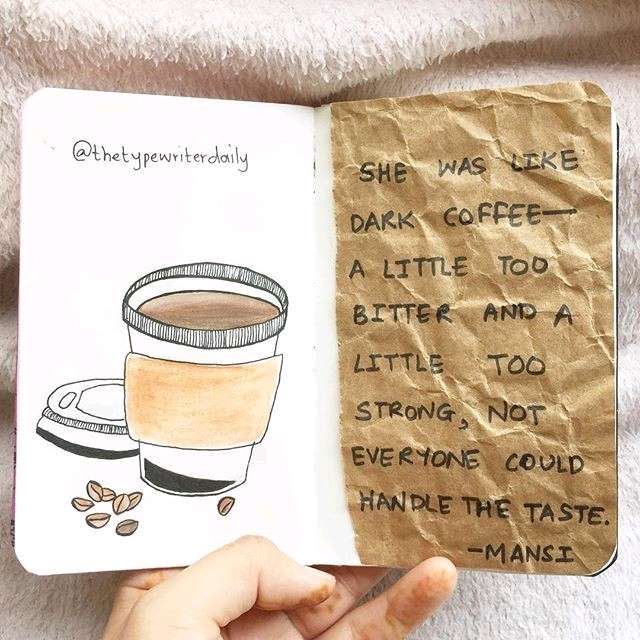 @thetypewriterdaily
SHE WAS LIKE
DARK COFFEE—
A LITTLE TOO
BITTER AND A
LITTLE TOO
STRONG, NOT
EVERYONE COULD
HANDLE THE TASTE.
-MANSI